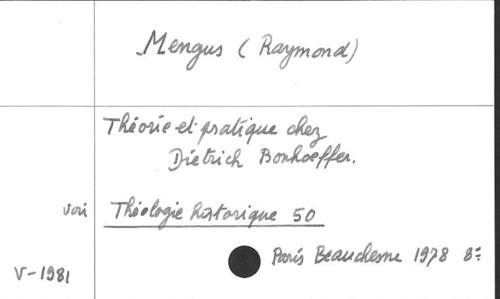 Mengus (Raymond)
Théorie et pratique chez
Dietrich Bonhoeffer.
voir Théologie historique 50
Paris Beauchesne 1978 8º
V-1981